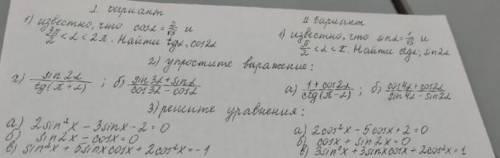 I вариант
1) известно, что cosα = 2/√5 и
3π/2 < α < 2π. Найти tgα, cos2α
II вариант
1) известно, что sinα = 1/√5 и
π/2 < α < π. Найти ctgα, sin2α
2) упростите выражение:
а) sin2α / tg(π-α) ; б) sin3α+sinα / cos3α-cosα
а) 1+cos2α / ctg(π-α) ; б) cos4α+cos2α / sin4α-sin2α
3) решите уравнения:
а) 2sin²x - 3sinx - 2 = 0
б) sin2x - cosx = 0
в) sin²x + 5sinxcosx + 2cos²x = -1
а) 2cos²x - 5cosx + 2 = 0
б) cosx + sin2x = 0
в) 3sin²x + sinxcosx + 2cos²x = 1